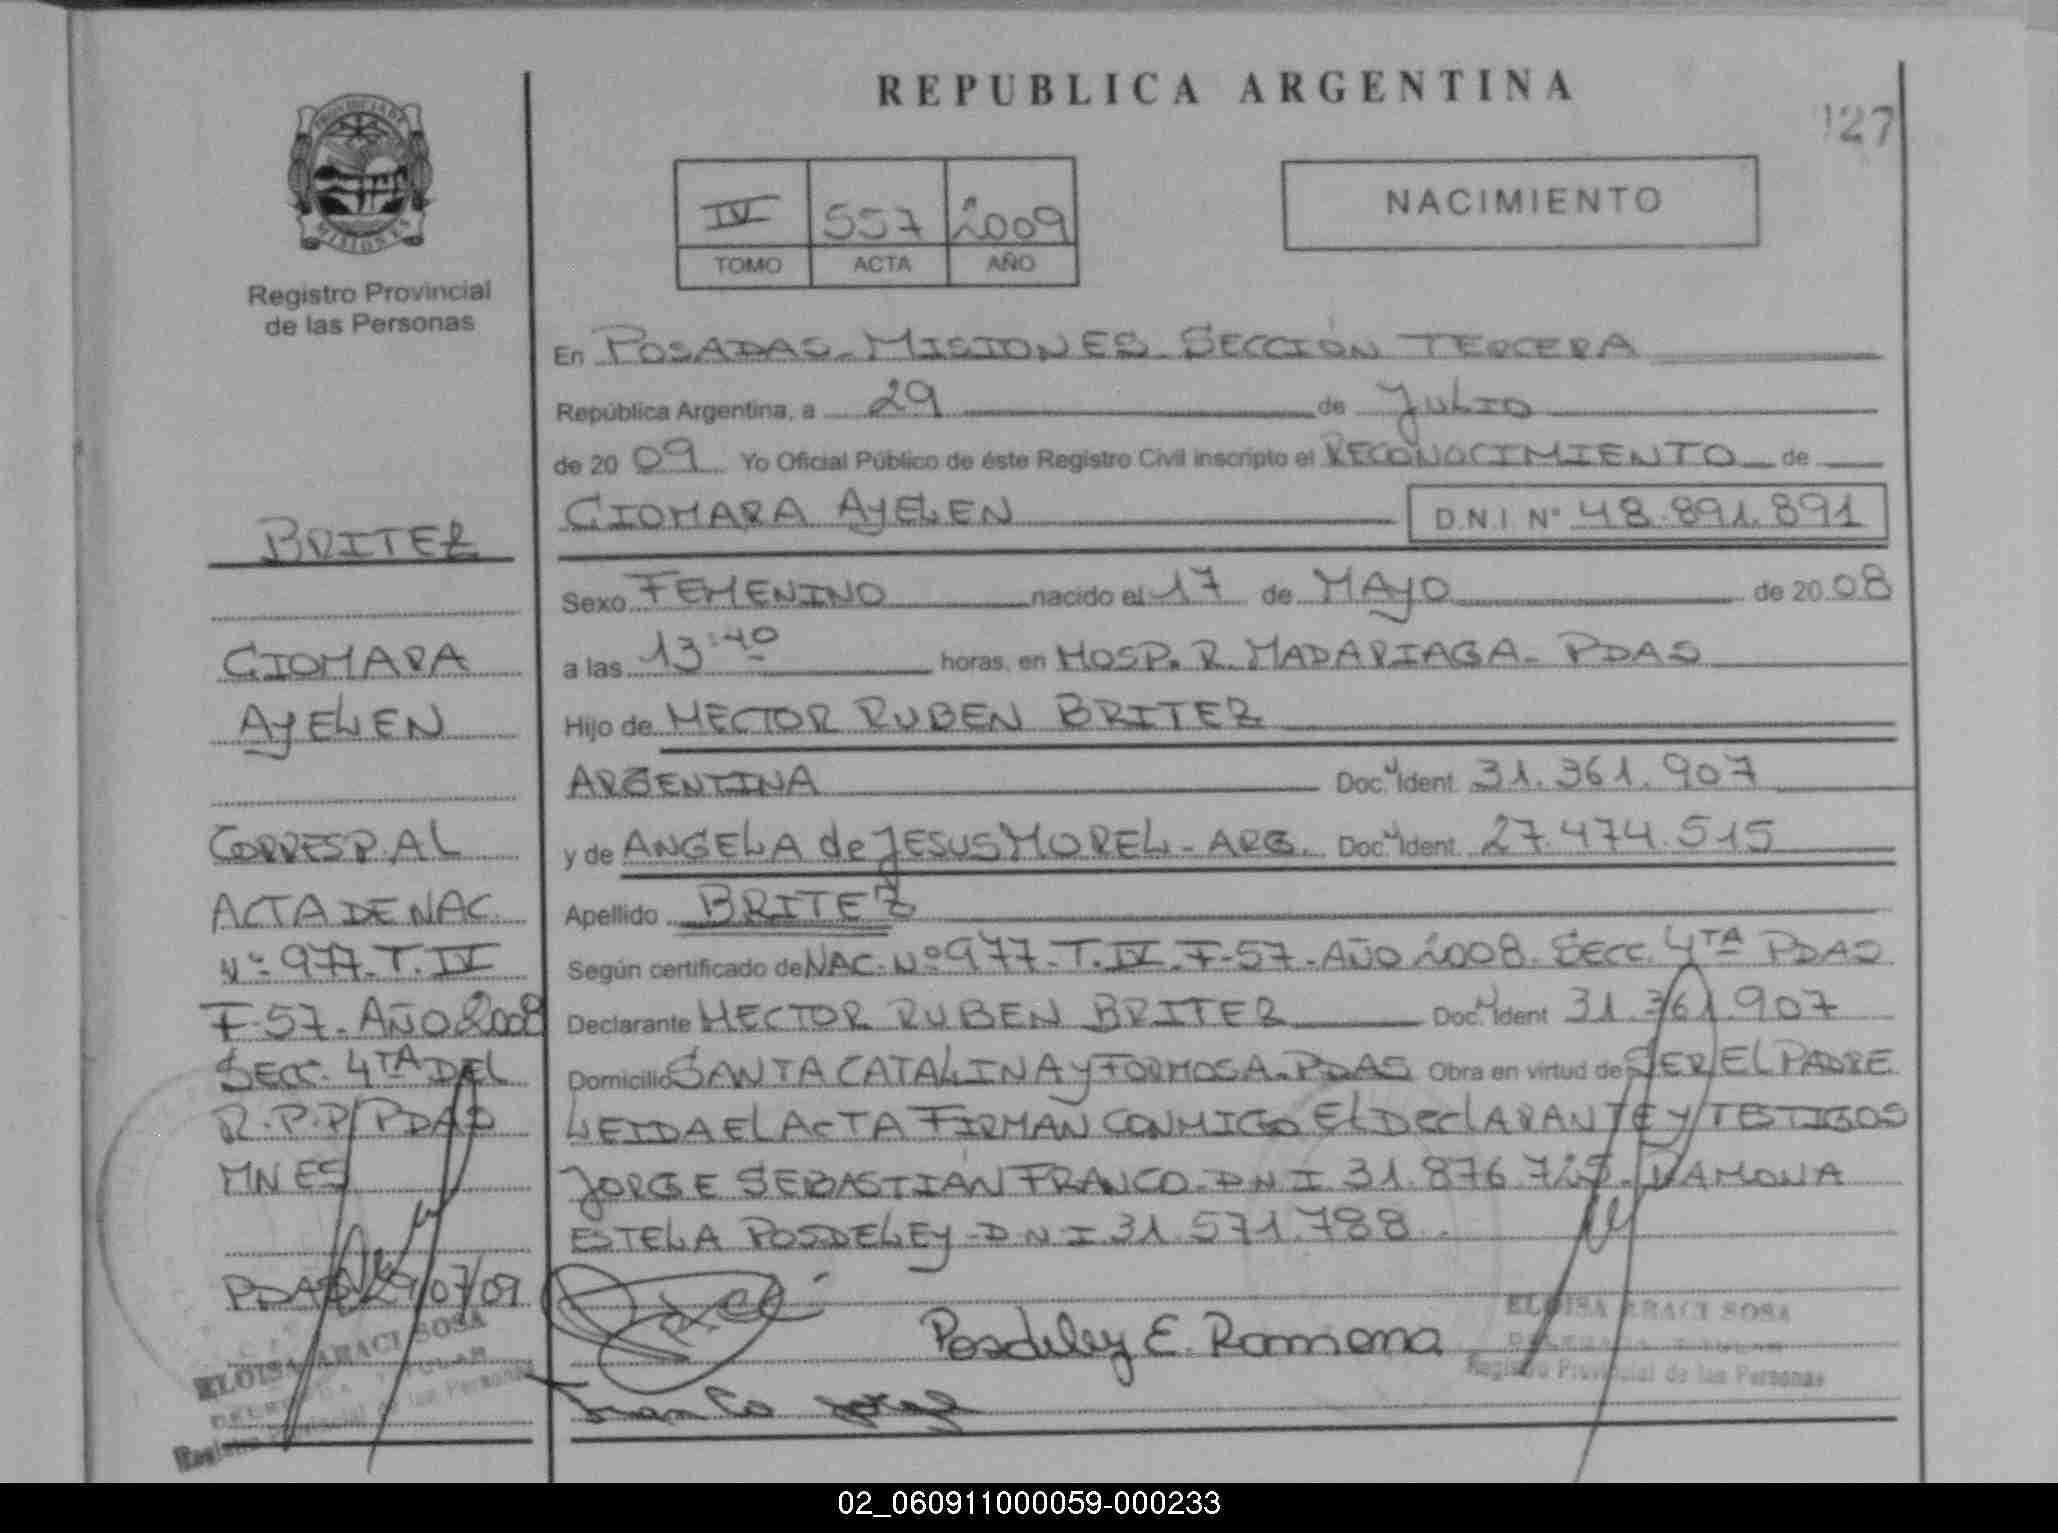 REPUBLICA ARGENTINA
127
PROVINCIA DE
MISIONES
Registro Provincial
de las Personas
IV 557 2009
TOMO ACTA AÑO
NACIMIENTO
En POSADAS - MISIONES SECCIÓN TERCERA
República Argentina, a 29 de JULIO
de 20 09 Yo Oficial Público de éste Registro Civil inscripto el RECONOCIMIENTO de
CIOMARA AYELEN D.N.I Nº 48.891.891
Sexo FEMENINO nacido el 17 de MAYO de 20 08
a las 13:40 horas, en HOSP. R. MADARIAGA - PDAS
Hijo de HECTOR RUBEN BRITEZ
ARGENTINA Doc. Ident. 31.361.907
y de ANGELA de JESUS MOREL - ARG. Doc. Ident. 27.474.515
Apellido BRITEZ
Según certificado de NAC. Nº 977 - T. IV - F-57 - AÑO 2008 - SECC. 4TA PDAS
Declarante HECTOR RUBEN BRITEZ Doc. Ident 31.361.907
Domicilio SANTA CATALINA Y FORMOSA - PDAS Obra en virtud de SER EL PADRE
LEIDA EL ACTA FIRMAN CONMIGO EL DECLARANTE Y TESTIGOS
JORGE SEBASTIÁN FRANCO - DNI 31.876.725 - RAMONA
ESTELA POSDELEY - DNI 31.571.788.
Posdeley E. Ramona
Franco Jorge
ELOISA ARACI SOSA
DELEGADA TITULAR
Registro Provincial de las Personas
BRITEZ
CIOMARA
AYELEN
CORRESP. AL
ACTA DE NAC.
Nº 977 - T. IV
F-57 - AÑO 2008
SECC. 4TA DEL
R.P.P. PDAS
MNES
PDAS 29/07/09
ELOISA ARACI SOSA
DELEGADA TITULAR
Registro Provincial de las Personas
02_060911000059-000233